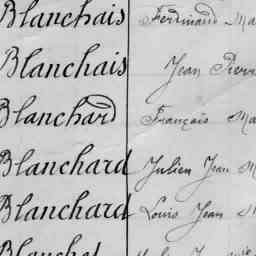 Blanchais Ferdinand Ma
Blanchais Jean Pierr
Blanchard François Ma
Blanchard Julien Jean M
Blanchard Louis Jean
Blanchet